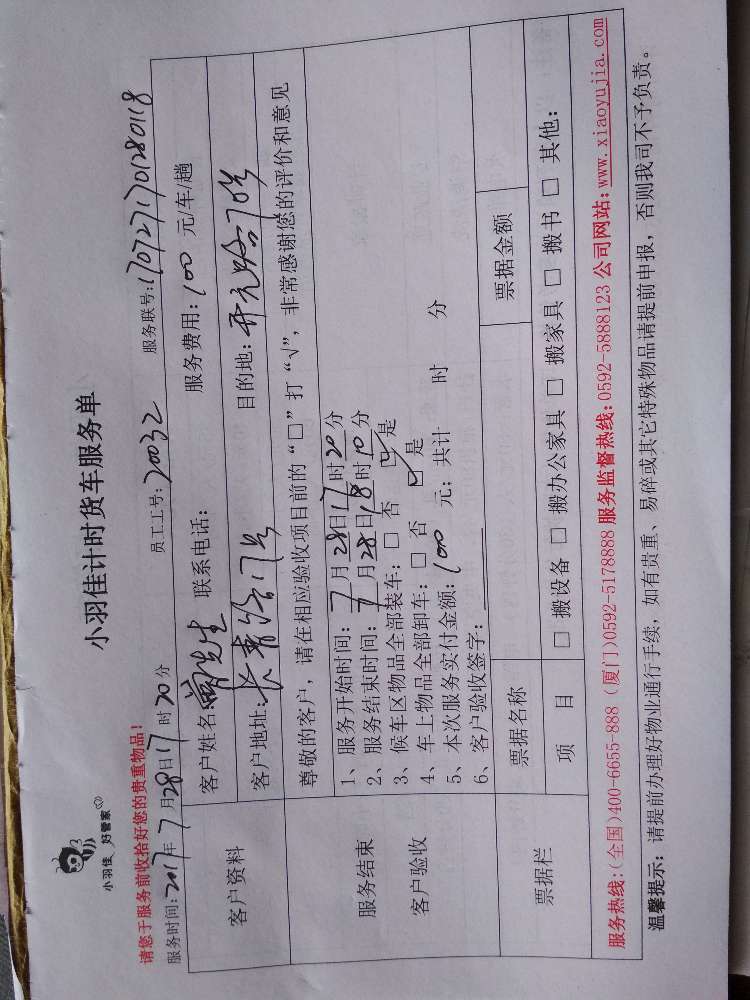 小羽佳 好管家
小羽佳计时货车服务单
请您于服务前收拾好您的贵重物品!
服务时间: 2017年 7月28日17时20分 员工工号: 20032 服务联号: 1707271701280118
客户资料
客户姓名: 先生 联系电话: 服务费用: 100 元/车/趟
客户地址: 长青路 号 目的地: 开元路70号
服务结束
客户验收
尊敬的客户,请在相应验收项目前的“□”打“√”,非常感谢您的评价和意见
1、服务开始时间: 7月28日17时20分
2、服务结束时间: 7月28日18时10分
3、候车区物品全部装车: □ 否 ☑ 是
4、车上物品全部卸车: □ 否 ☑ 是
5、本次服务实付金额: 100 元; 共计 时 分
6、客户验收签字:
票据栏
票据名称 票据金额
项 目 □ 搬设备 □ 搬办公家具 □ 搬家具 □ 搬书 □ 其他:
服务热线:(全国)400-6655-888 (厦门)0592-5178888 服务监督热线:0592-5888123 公司网站:www.xiaoyujia.com
温馨提示: 请提前办理好物业通行手续, 如有贵重、易碎或其它特殊物品请提前申报, 否则我司不予负责。